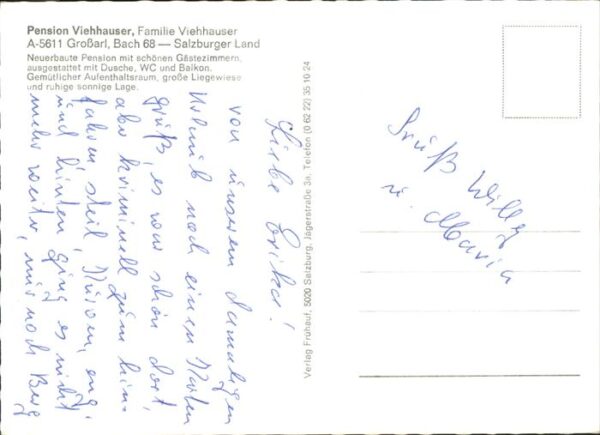 Pension Viehhauser, Familie Viehhauser
A-5611 Großarl, Bach 68 — Salzburger Land
Neuerbaute Pension mit schönen Gästezimmern,
ausgestattet mit Dusche, WC und Balkon,
Gemütlicher Aufenthaltsraum, große Liegewiese
und ruhige sonnige Lage.
Liebe Erika!
von unserem damaligen
Urlaub noch einen Karten
gruß, es war schön dort,
aber kriminell zum hin-
fahren, steil, Kurven, eng,
und hinten ging es nicht
mehr weiter, nur noch Berg
Verlag Frühauf, 5020 Salzburg, Jägerstraße 3a, Telefon (0 62 22) 35 10 24
Gruß Willy
u. Maria